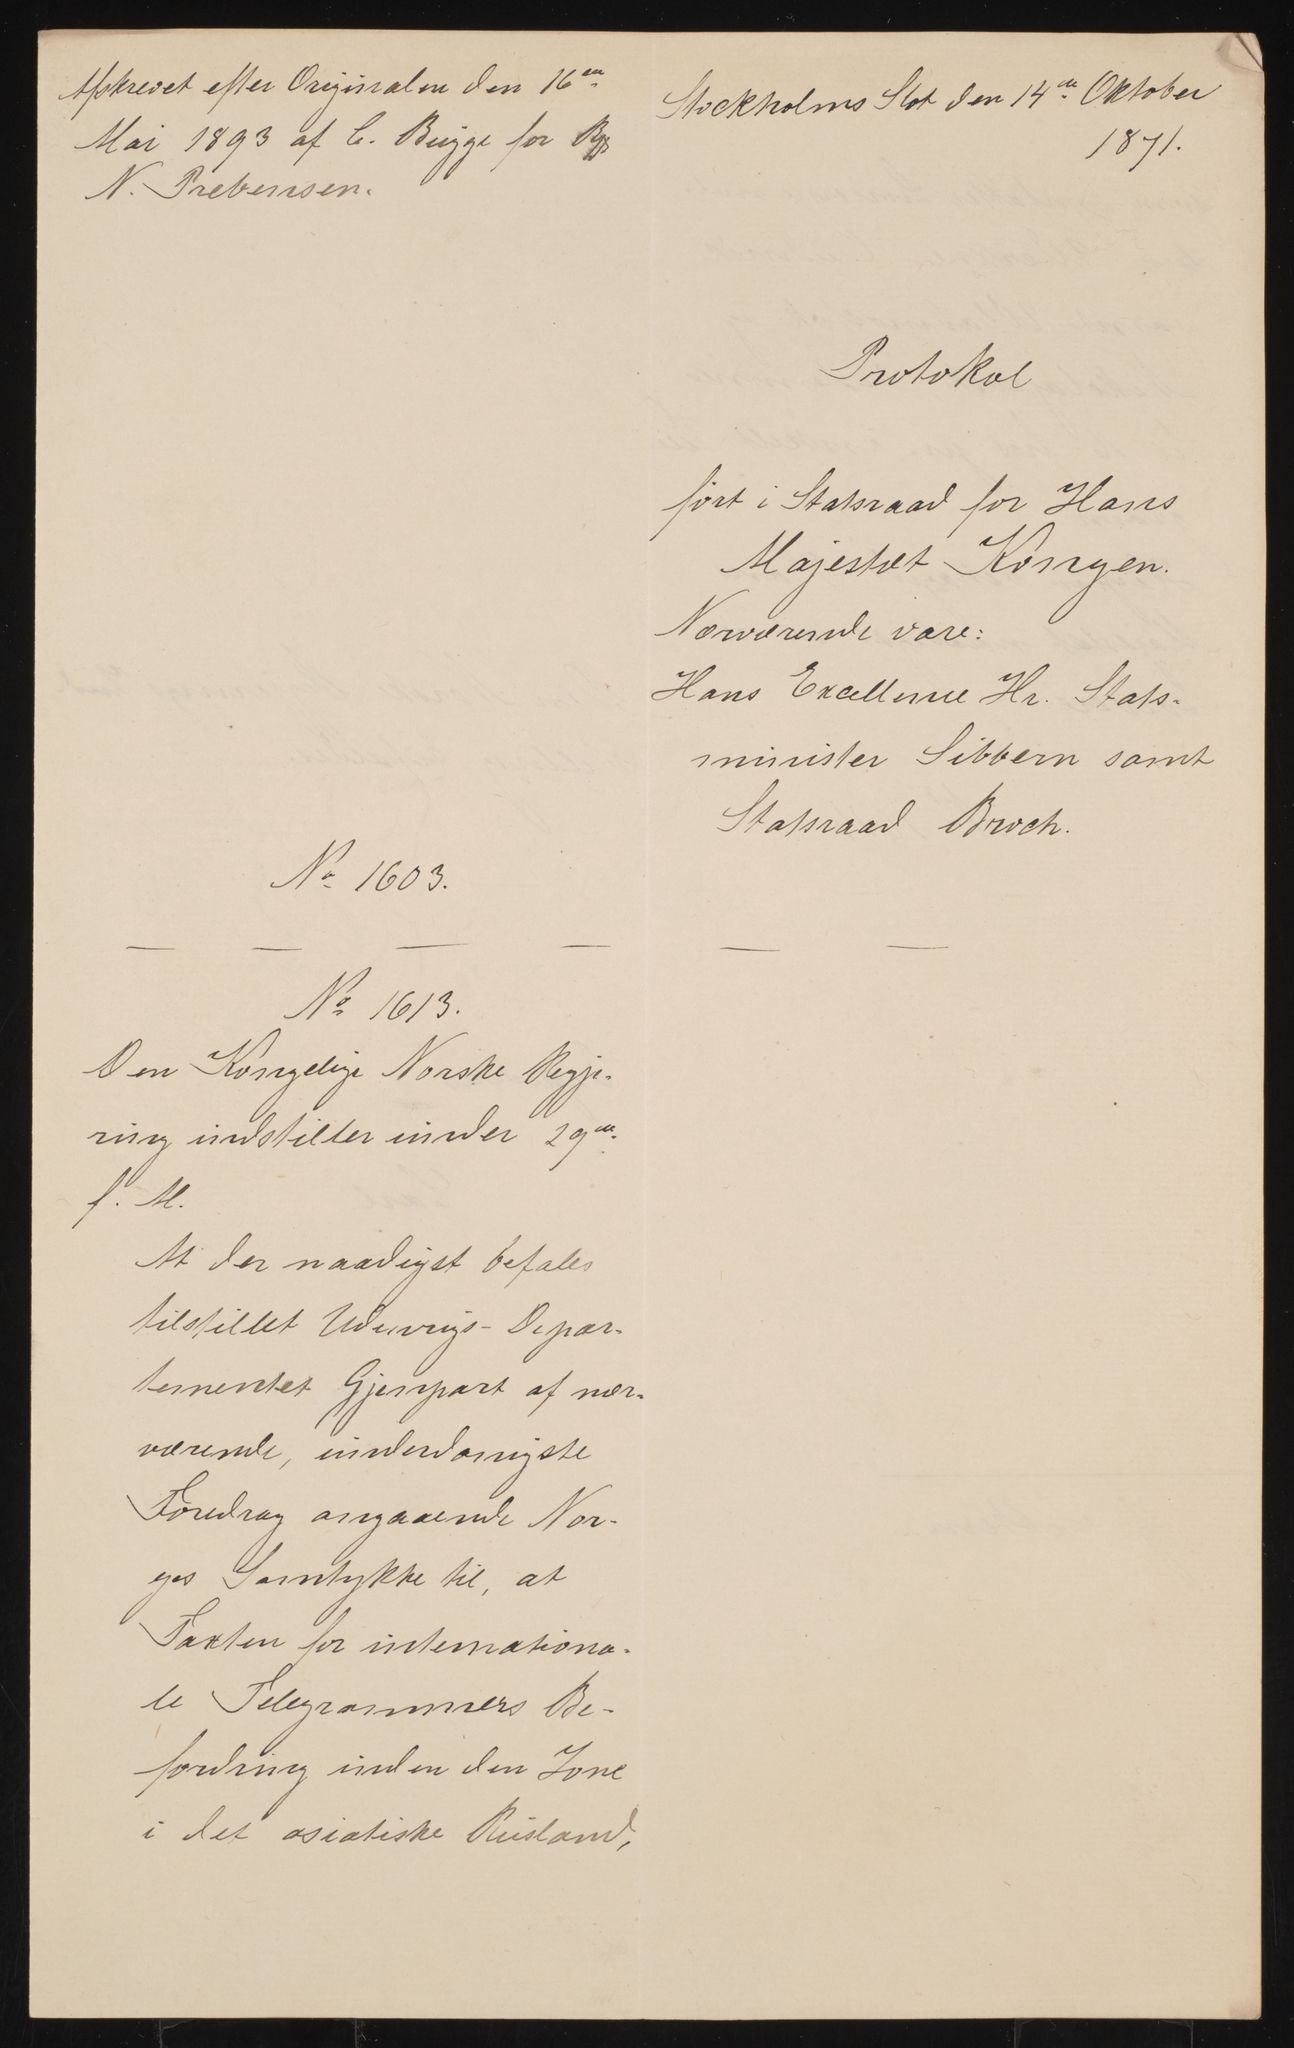 Afskrevet efter Originalen den 16de
Mai 1893 af C. Bugge for
N. Prebensen.
Stockholms Slot den 14de Oktober
1871.
Protokol
ført i Statsraad for Hans
Majestæt Kongen.
Nærværende vare:
Hans Excellence Hr. Stats-
minister Sibbern samt
Statsraad Broch.
No 1603.
No 1613.
Den Kongelige Norske Regje-
ring indstiller under 29de
f. M.
At der naadigst befales
tilstillet Udenrigs-Depar-
tementet Gjenpart af nær-
værende, underdanigste
Foredrag angaaende Nor-
ges Samtykke til, at
Taxten for internationa-
le Telegrammers Be-
fordring inden den Zone
i det asiatiske Rusland,